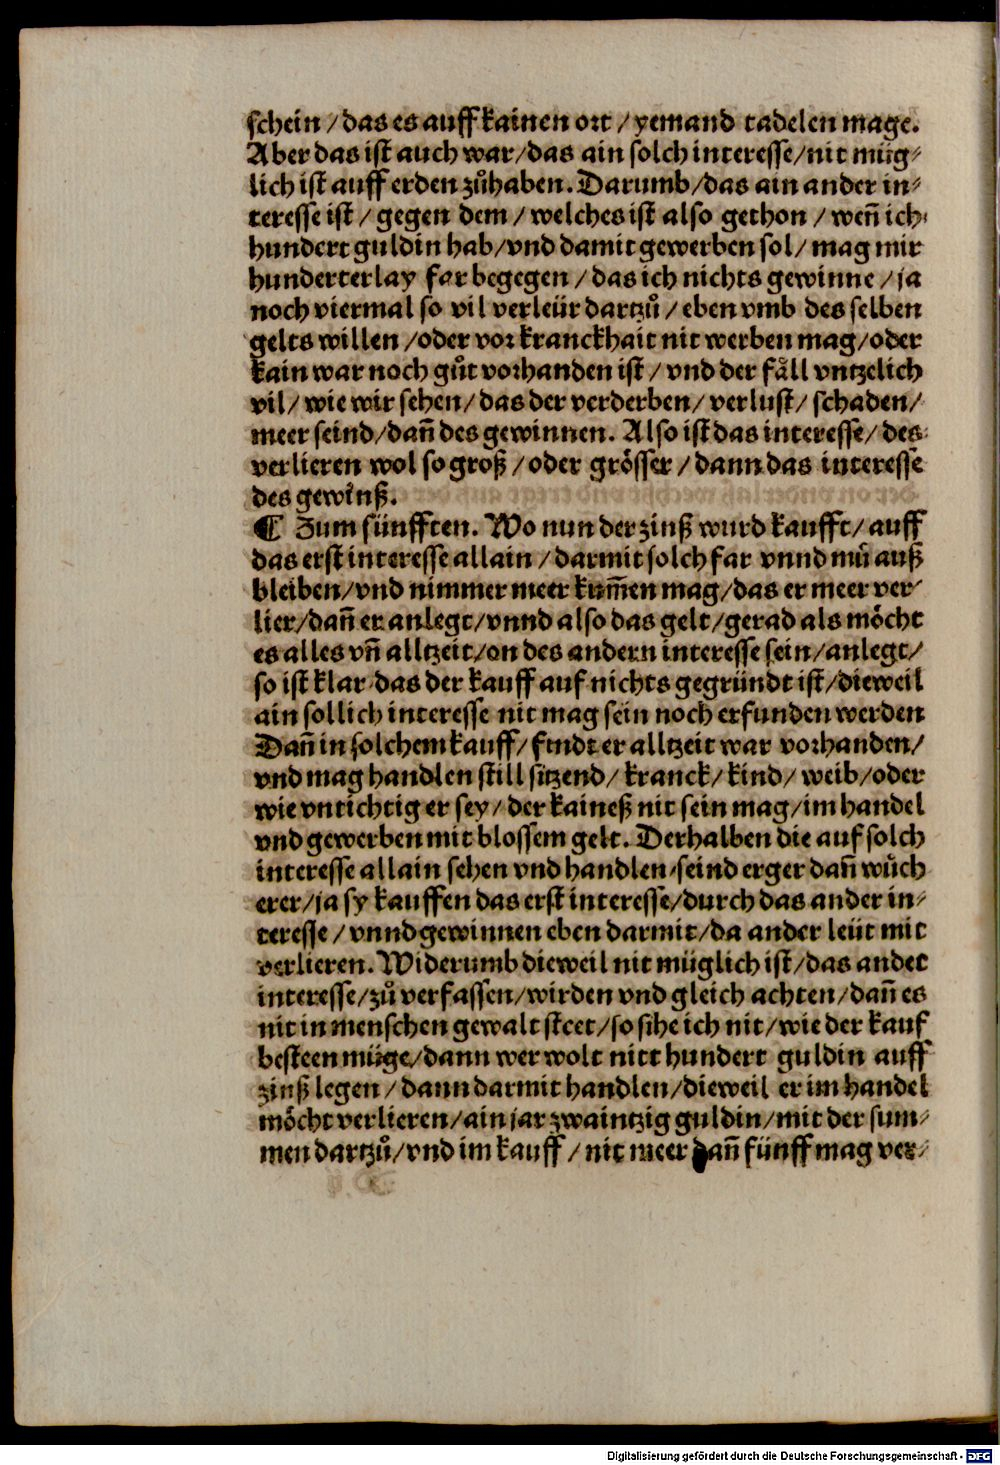 schein / das es auff kainen ort / yemand tadelen mage.
Aber das ist auch war / das ain solch interesse / nit müg⸗
lich ist auff erden zůhaben. Darumb / das ain ander in⸗
teresse ist / gegen dem / welches ist also gethon / weñ ich
hundert guldin hab / vnd damit gewerben sol / mag mir
hunderterlay far begegen / das ich nichts gewinne / ja
noch viermal so vil verleür dartzů / eben vmb des selben
gelts willen / oder vor kranckhait nit werben mag / oder
kain war noch gůt vorhanden ist / vnd der fåll vntzelich
vil / wie wir sehen / das der verderben / verlust / schaden /
meer seind / dañ des gewinnen. Also ist das interesse / des
verlieren wol so groß / oder grösser / dann das interesse
des gewinß.
¶ Zum fünfften. Wo nun der zinß wurd kaufft / auff
das erst interesse allain / darmit solch far vnnd mů auß
bleiben / vnd nimmer meer kum̃en mag / das er meer ver⸗
lier / dañ er anlegt / vnnd also das gelt / gerad als möcht
es alles vñ alltzeit / on des andern interesse sein / anlegt /
so ist klar das der kauff auf nichts gegründt ist / dieweil
ain sollich interesse nit mag sein noch erfunden werden
Dañ in solchem kauff / findt er alltzeit war vorhanden /
vnd mag handlen still sitzend / kranck / kind / weib / oder
wie vntichtig er sey / der kaineß nit sein mag / im handel
vnd gewerben mit blossem gelt. Derhalben die auf solch
interesse allain sehen vnd handlen / seind erger dañ wůch
erer / ja sy kauffen das erst interesse / durch das ander in⸗
teresse / vnnd gewinnen eben darmit / da ander leüt mit
verlieren. Widerumb dieweil nit müglich ist / das ander
interesse / zů verfassen / wirden vnd gleich achten / dañ es
nit in menschen gewalt steet / so sihe ich nit / wie der kauf
besteen müge / dann wer wolt nitt hundert guldin auff
zinß legen / dann darmit handlen / dieweil er im handel
möcht verlieren / ain jar zwaintzig guldin / mit der sum⸗
men dartzů / vnd im kauff / nit meer dañ fünff mag ver⸗
Digitalisierung gefördert durch die Deutsche Forschungsgemeinschaft - DFG